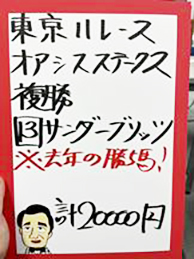 東京11レース
オアシスステークス
複勝
13サンダーブリッツ
※去年の勝馬!
計20000円